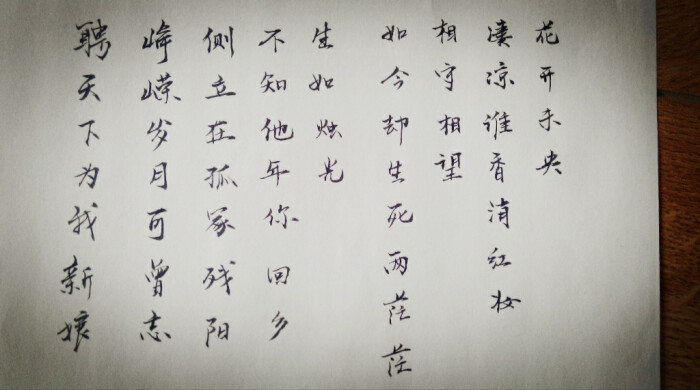 花开未央
凄凉谁香消红妆
相守相望
如今却生死两茫茫
生如烛光
不知他年你回乡
侧立在孤冢残阳
峥嵘岁月可曾志
聘天下为我新娘